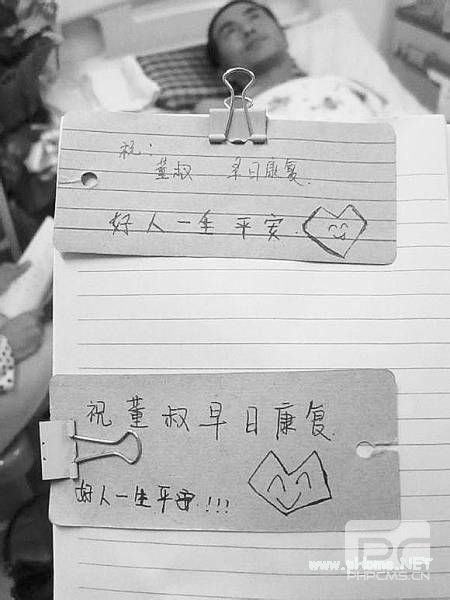 祝：
董叔 早日康复.
好人一生平安.
祝董叔早日康复.
好人一生平安.!!!
PC
www.pHome.NET
PHPCMS.CN